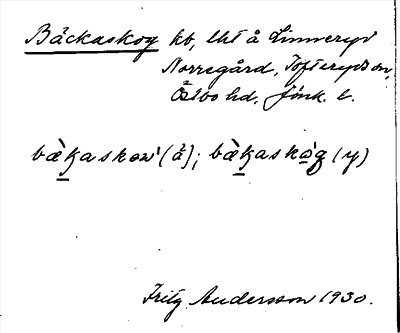 Bäckaskog kt, lht å Linneryd
Norregård, Tofteryds sn,
Östbo hd, Jönk. l.
bæ̀kaskow'(ä); bæ̀kaskòg (y)
Fritz Andersson 1930.